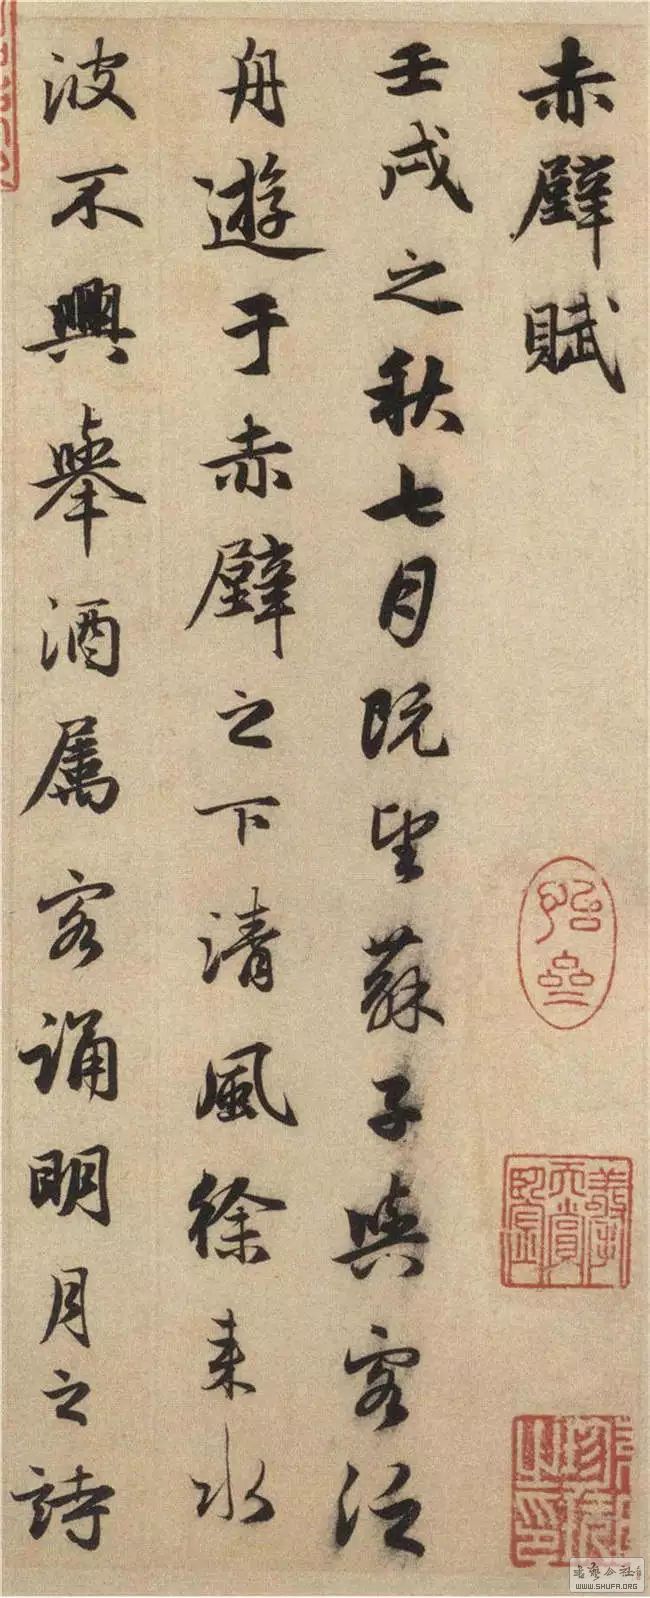 赤壁賦
壬戌之秋七月既望蘇子與客泛
舟遊于赤壁之下清風徐来水
波不興舉酒属客誦明月之詩
WWW.SHUFA.ORG